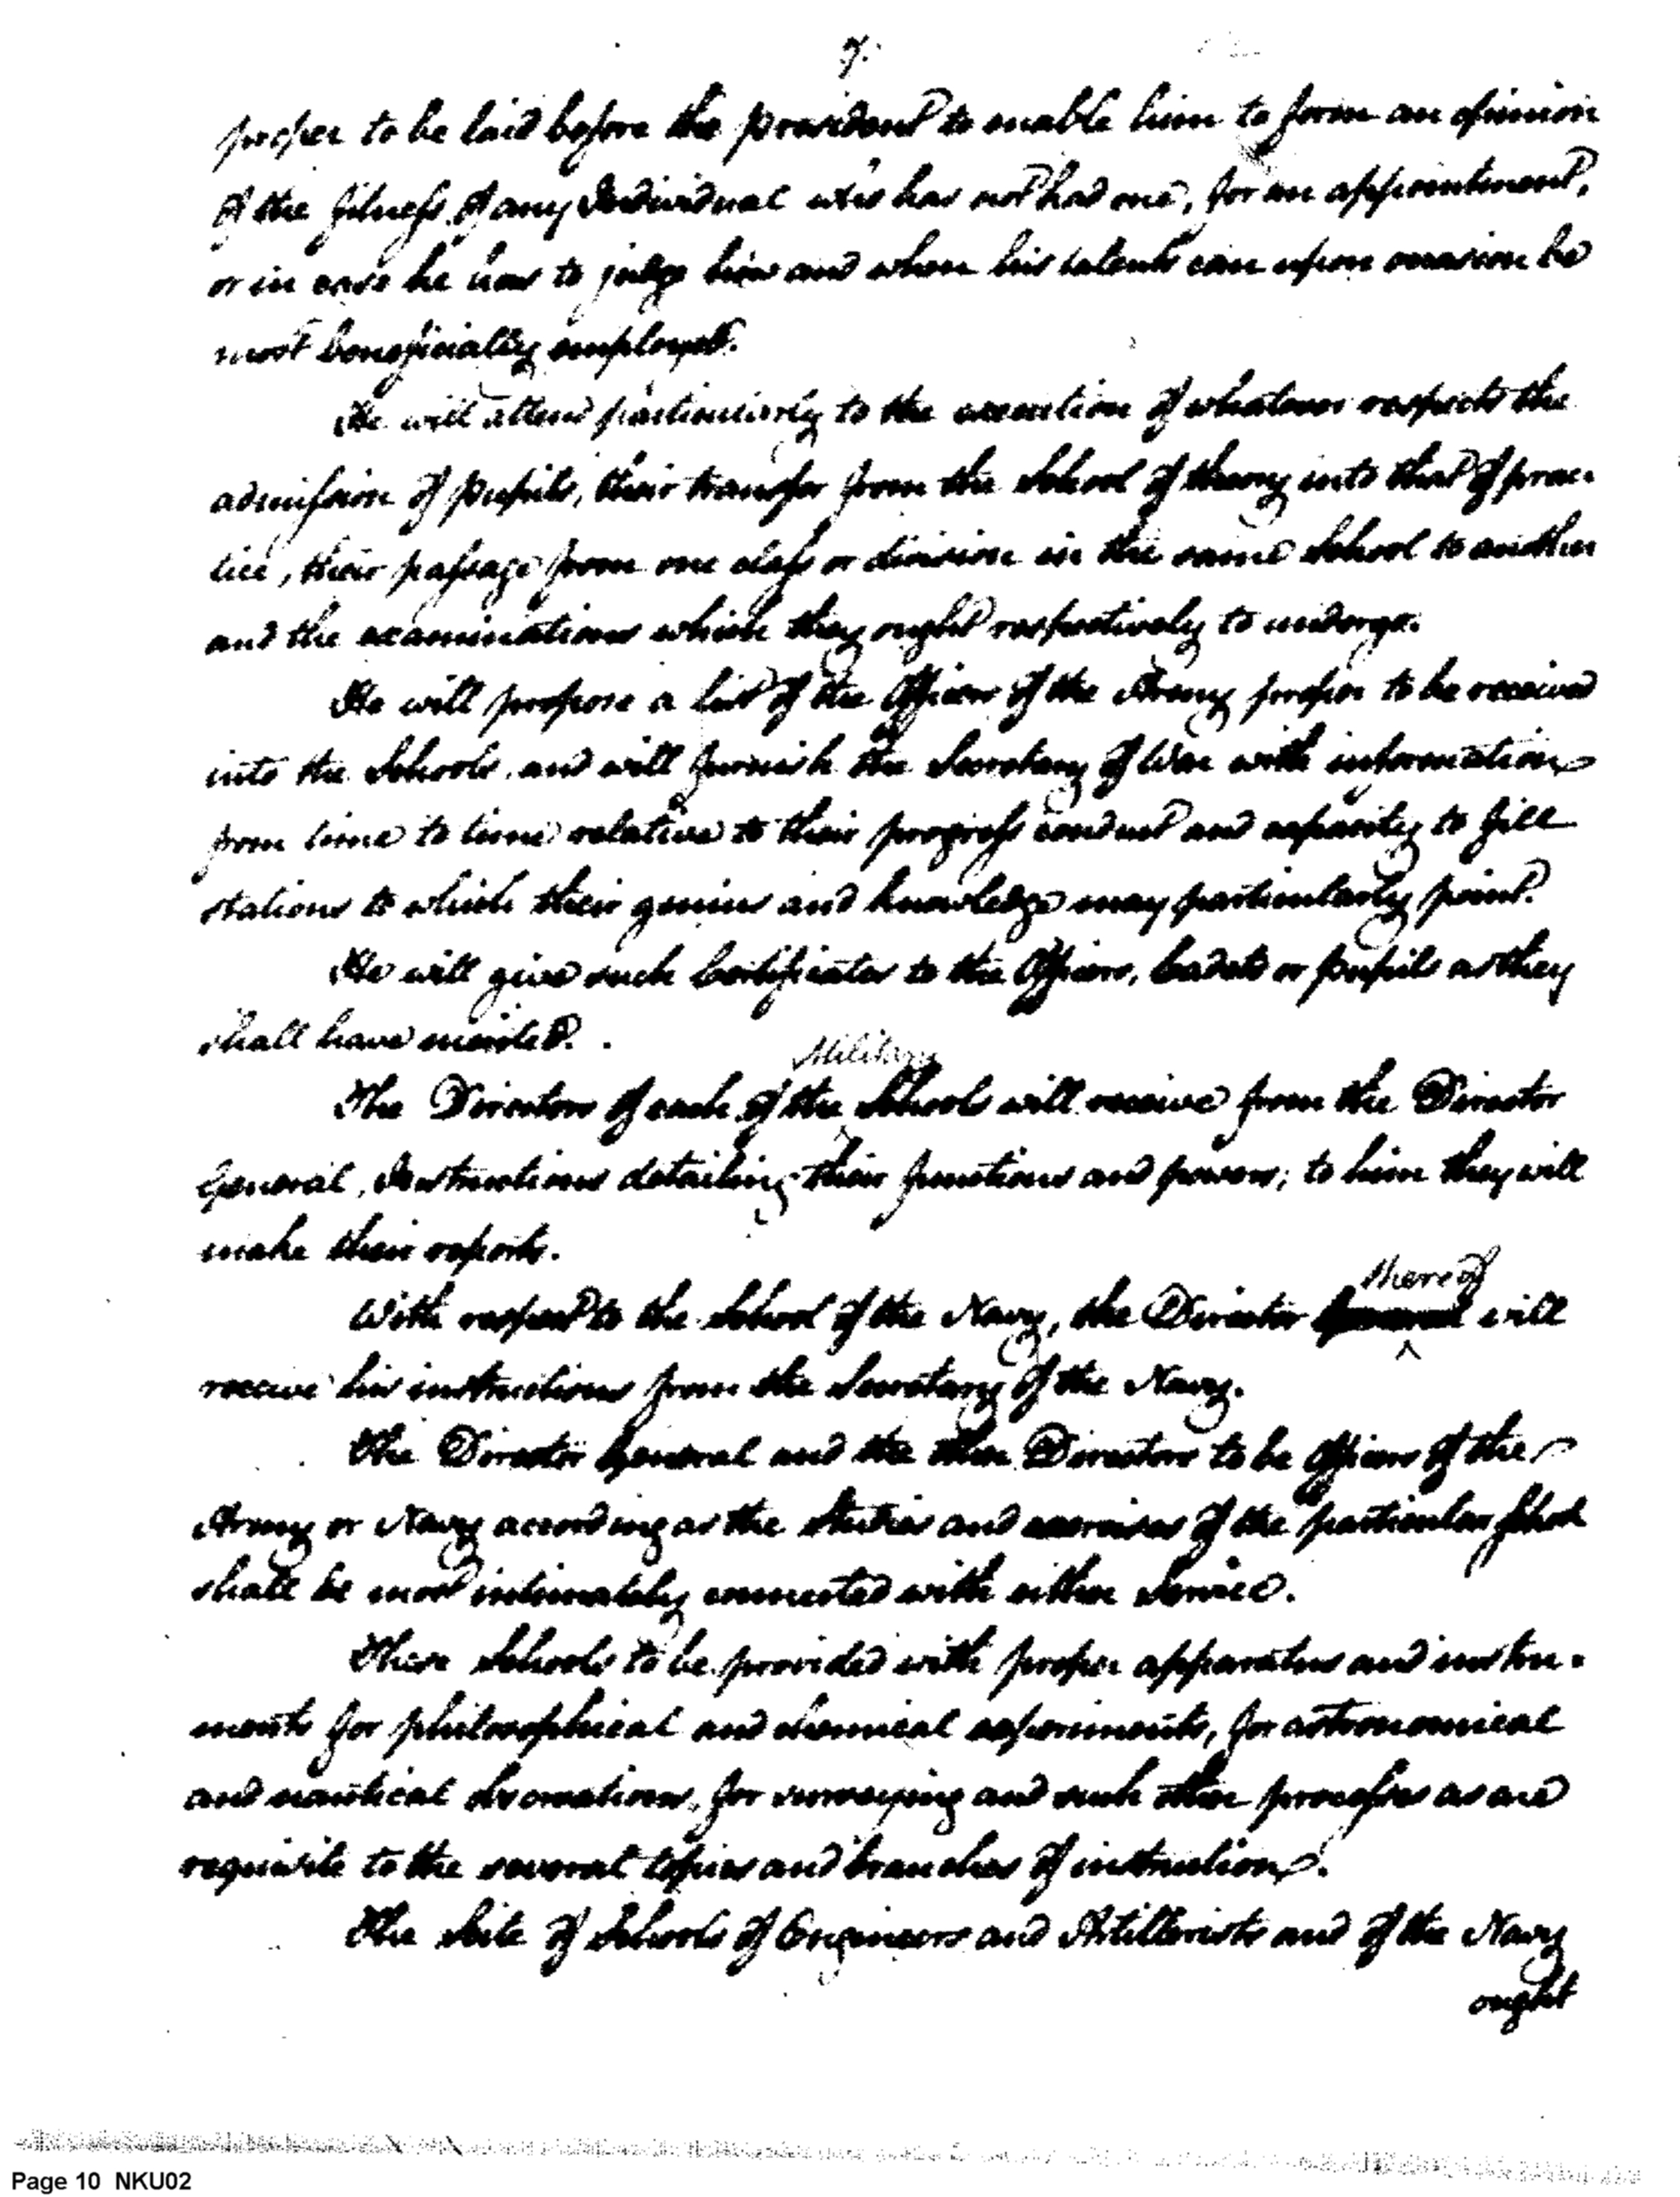 9.
proper to be laid before the president to enable him to form an opinion
of the fitness of any Individual who has not had one, for an appointment,
or in case he has to judge how and when his talents can upon occasion be
most beneficially employed.
He will attend particularly to the execution of whatever respects the
admission of pupils, their transfer from the School of theory into that of prac-
tice, their passage from one class or division in the same School to another
and the examinations which they ought respectively to undergo.
He will propose a list of the Officers of the Army proper to be received
into the Schools, and will furnish the Secretary of War with information
from time to time relative to their progress conduct and capacity to fill
stations to which their genius and knowledge may particularly point.
He will give such Certificates to the Officers, Cadets or pupils as they
shall have merited.
Military
The Directors of each of the Schools will receive from the Director
General, Instructions detailing their functions and powers; to him they will
make their reports.
thereof
With respect to the School of the Navy, the Director General will
receive his instructions from the Secretary of the Navy.
The Director General and the other Directors to be Officers of the
Army or Navy according as the Studies and exercises of the particular School
shall be most intimately connected with either Service.
These Schools to be provided with proper apparatus and instru-
ments for philosophical and chemical experiments, for astronomical
and nautical observations, for surveying and such other processes as are
requisite to the several topics and branches of instruction.
The Site of Schools of Engineers and Artillerists and of the Navy
ought
Page 10 NKU02